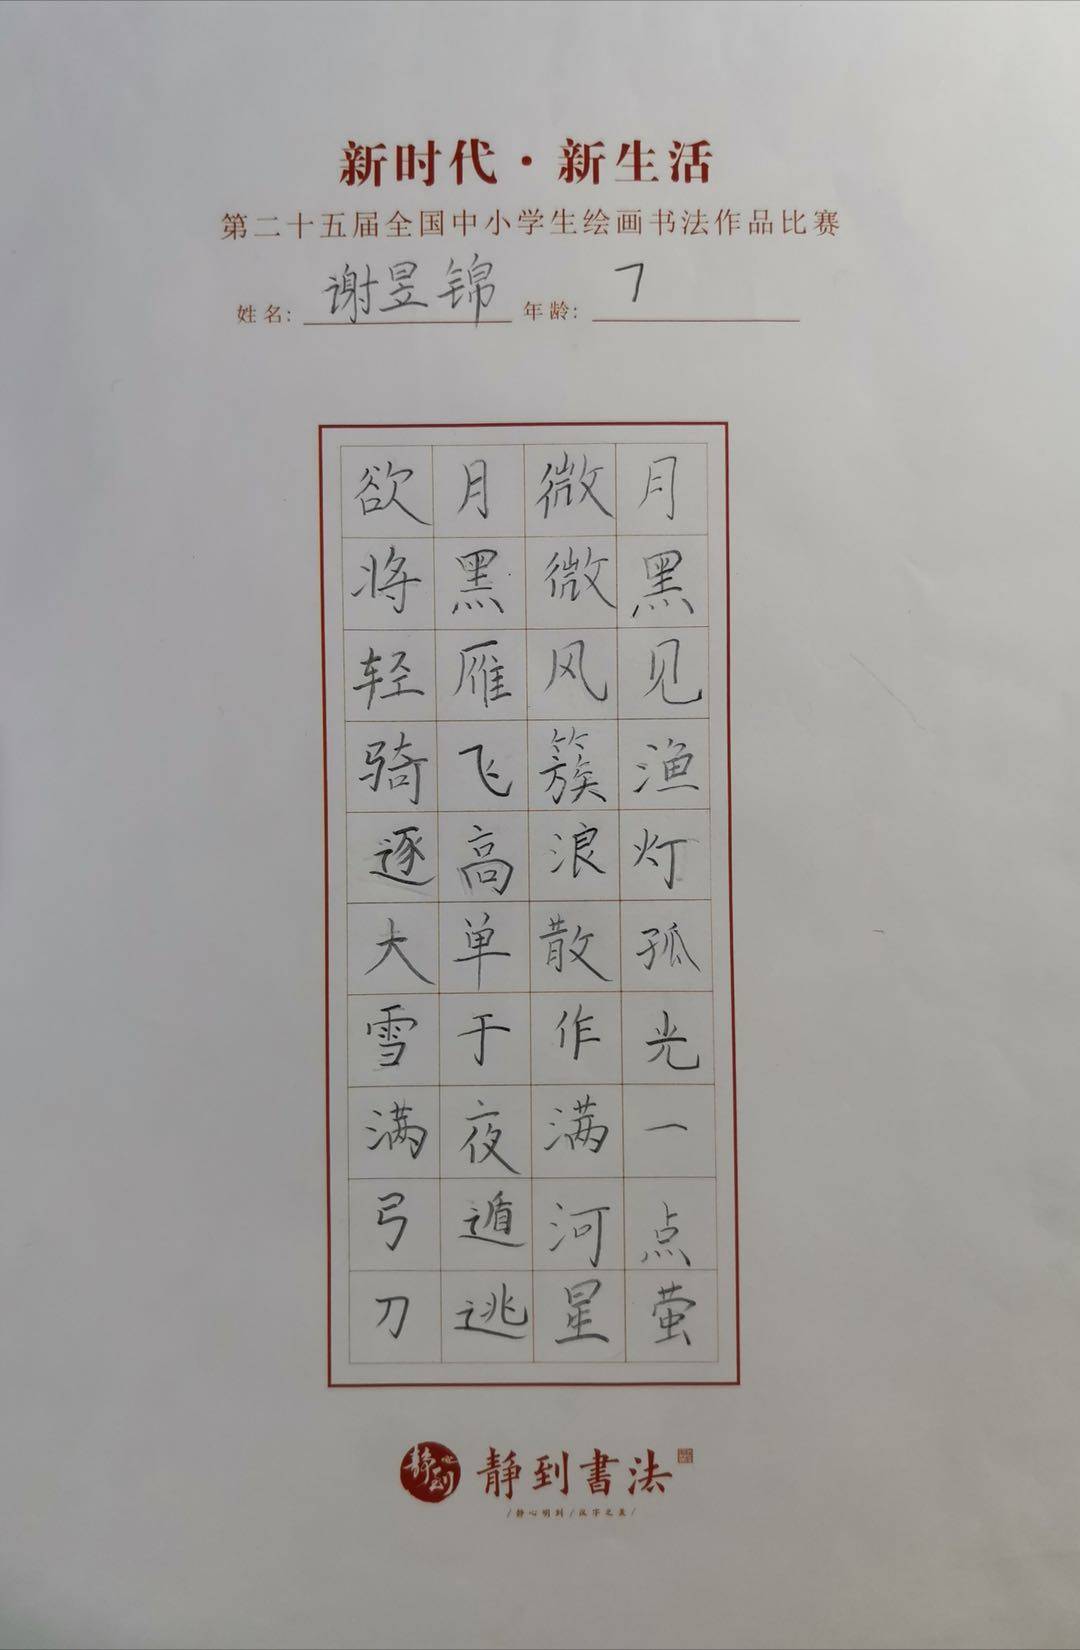 新时代·新生活
第二十五届全国中小学生绘画书法作品比赛
姓名: 谢昱锦 年龄: 7
月黑见渔灯孤光一点萤
微微风簇浪散作满河星
月黑雁飞高单于夜遁逃
欲将轻骑逐大雪满弓刀
静到
静到書法
/静心明到/汉字之美/